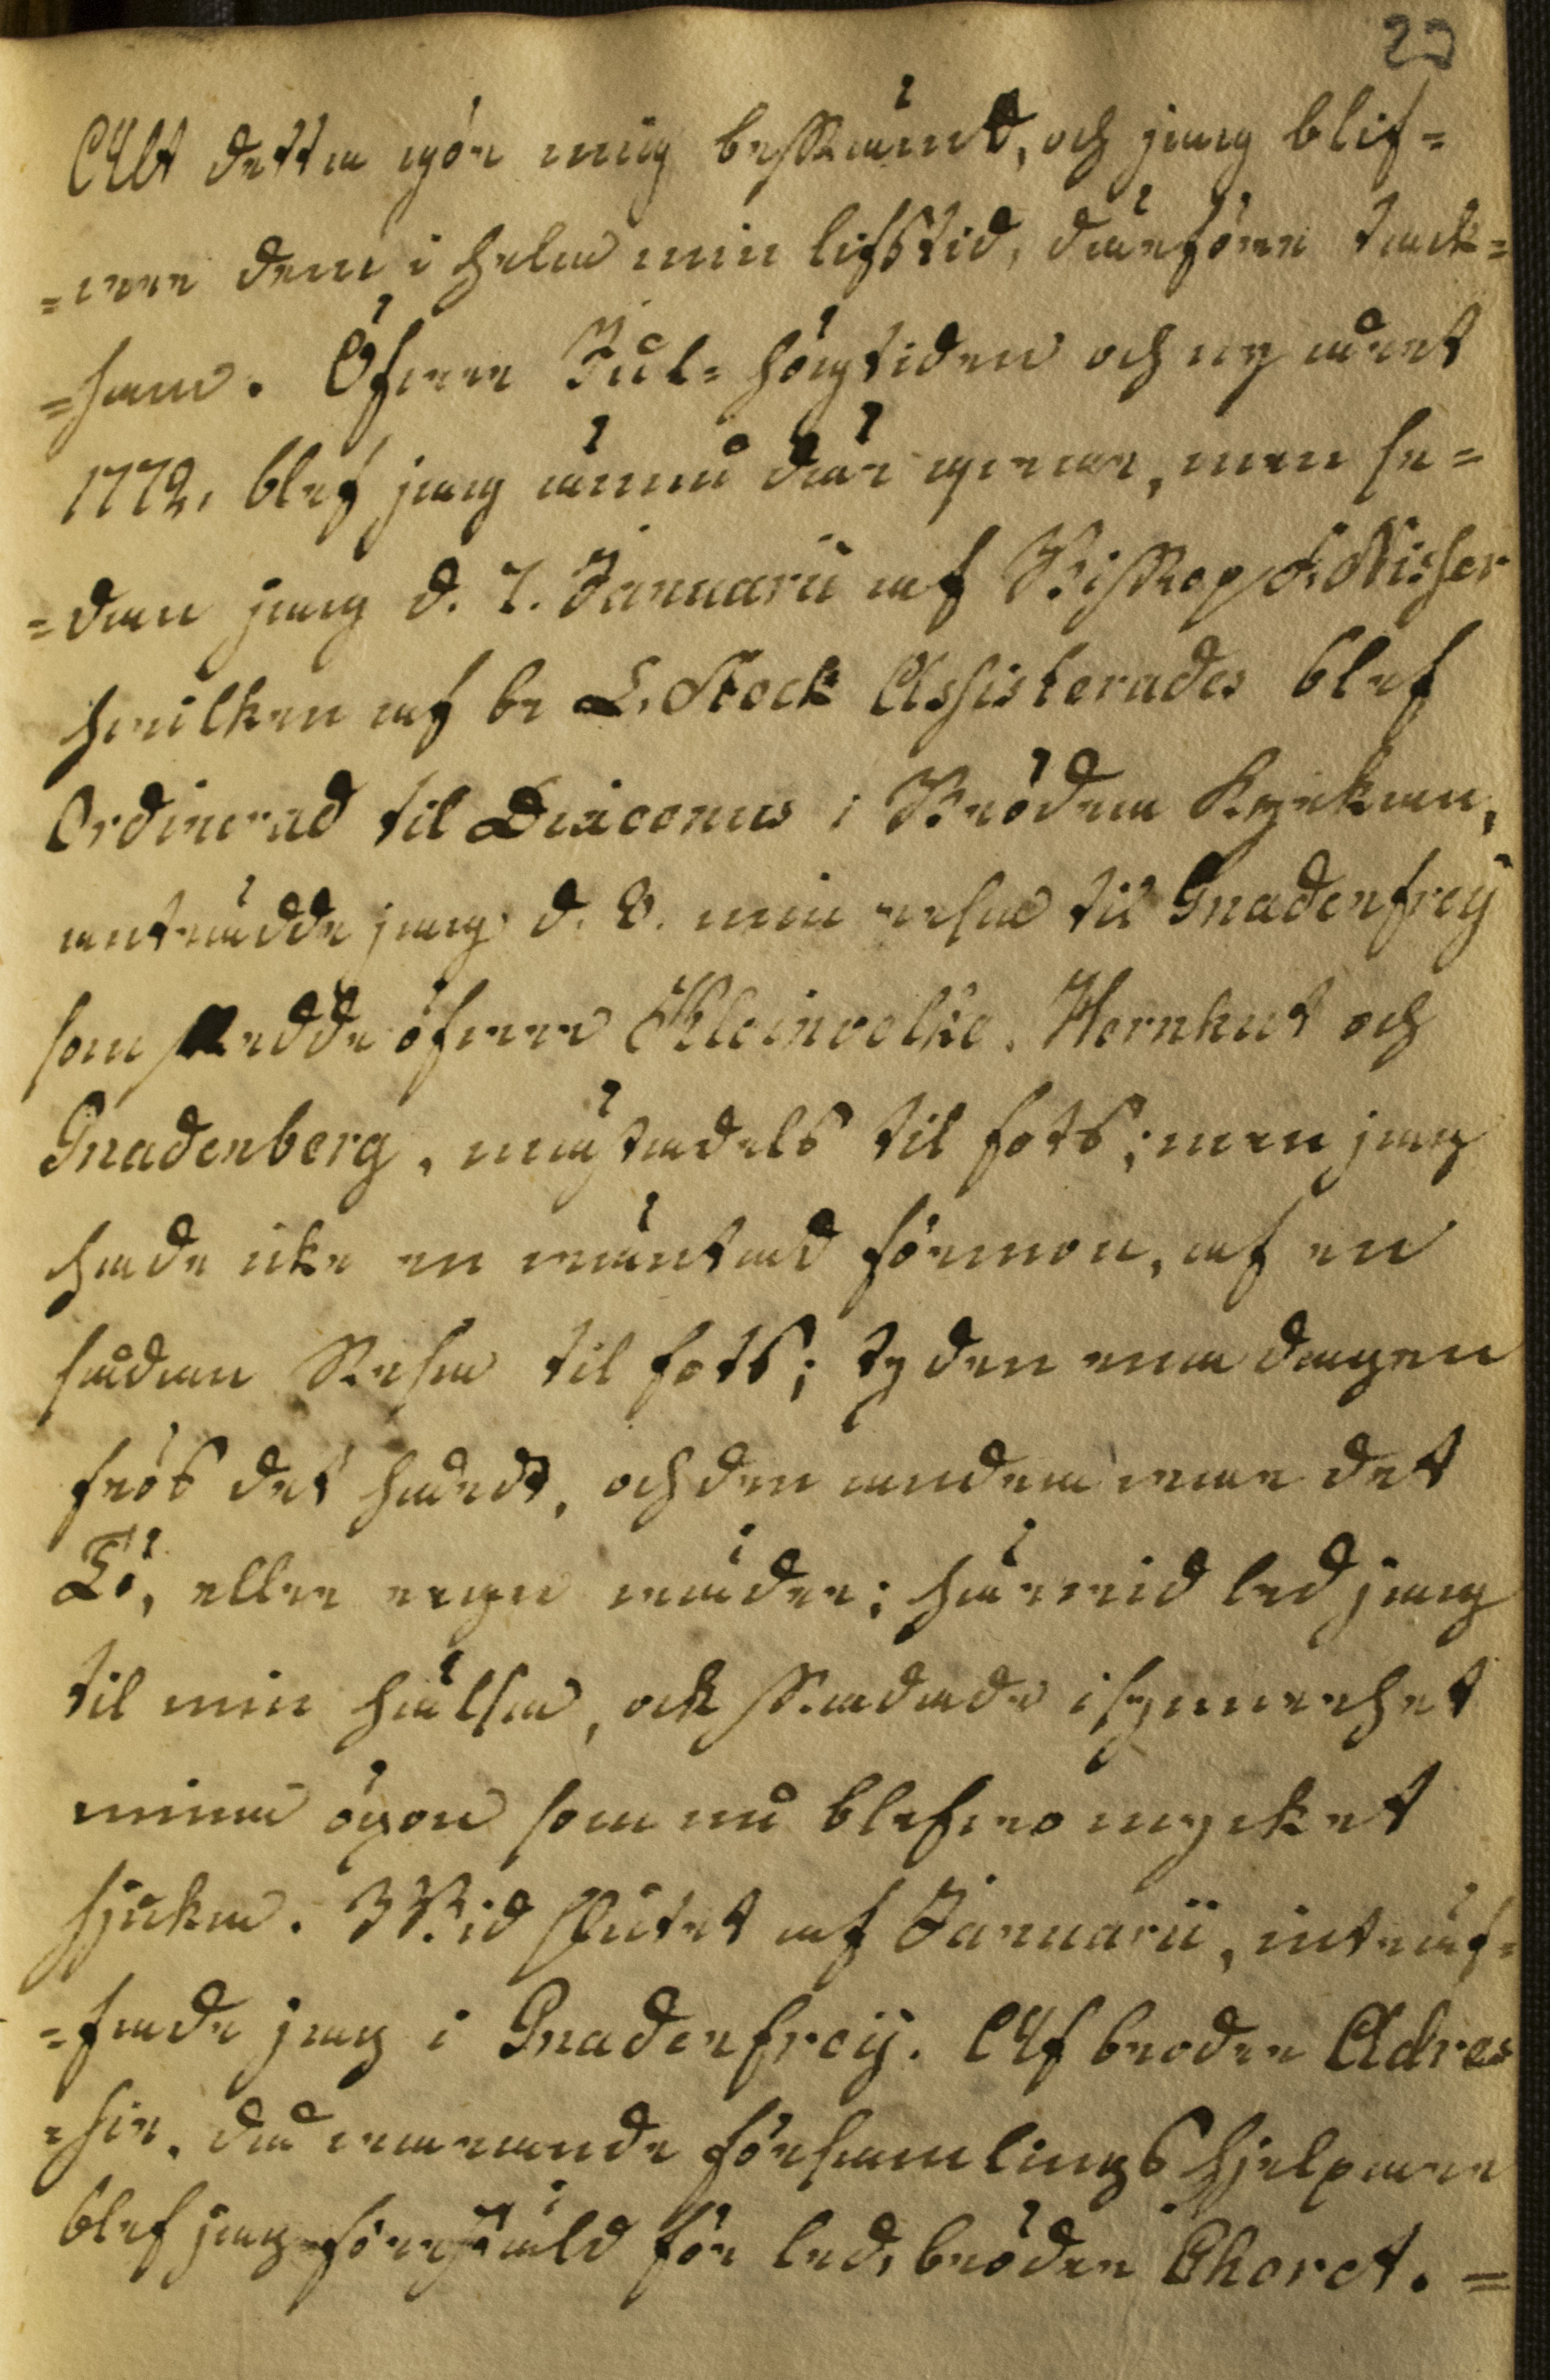 23
Alt detta gör mig beskämd, och jag blif=
=ver dem i hela min lifstid, därföre tack=
=sam. Öfver Jul=högtiden och ny året
1772, blef jag ännu där qvar, men se=
=dan jag d. 7. Januarii af Biskop F. Nisser
hvilken af br L. Stock Assisterades blef
Ordinerad til Diaconus i Brödra Kyrkan,
anträdde jag d. 8. min resa til Gnadenfreÿ
som skedde öfver Kleinvelke, Hernhut och
Gnadenberg, mästadels til fots; men jag
hade icke en väntad förmon, af en
sådan Resa til fots; ty den ena dagen
frös det hårdt, och den andra var det
Tö, eller regn väder; härvid led jag
til min hälsa, ock skadade isynnerhet
mina ögon som nu blefvo mycket
sjuka. Wid slutet af Januarii, inträf=
=fade jag i Gnadenfreÿ. Af broder Adres
=hir, då varande församlings hjelpare
blef jag förestäld för led. bröder Choret. =